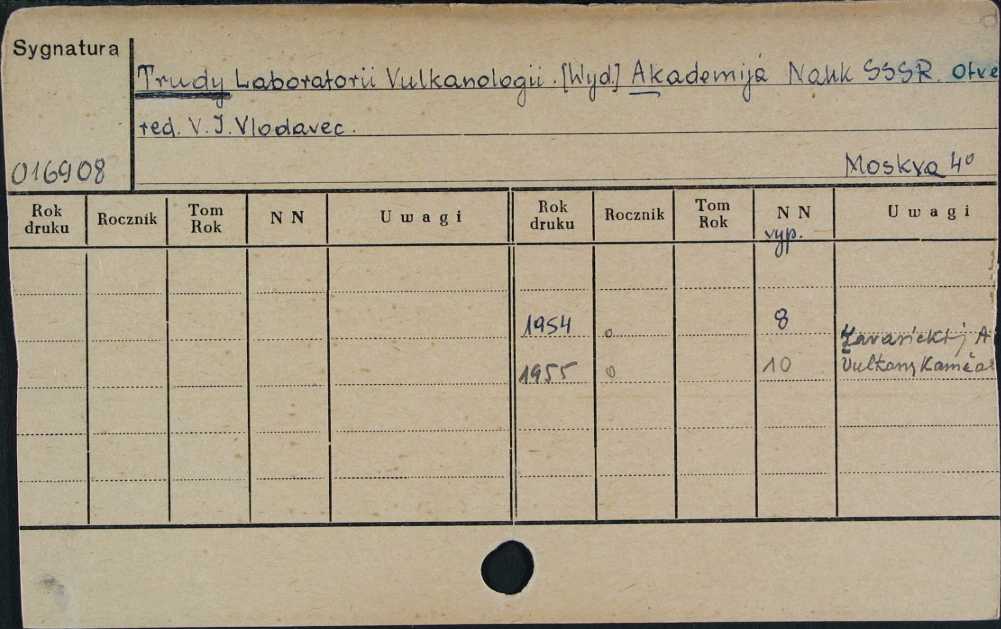 Sygnatura
Trudy Laboratorii Vulkanologii. [Wyd.] Akademijá Nauk SSSR. Otve
red. V. I. Vlodavec.
016908
Moskva 4º
Rok druku Rocznik Tom Rok N N Uwagi Rok druku Rocznik Tom Rok N N Uwagi
vyp.
1954 o 8
Zavarickij A
1955 o 10 Vulkany Kamčat